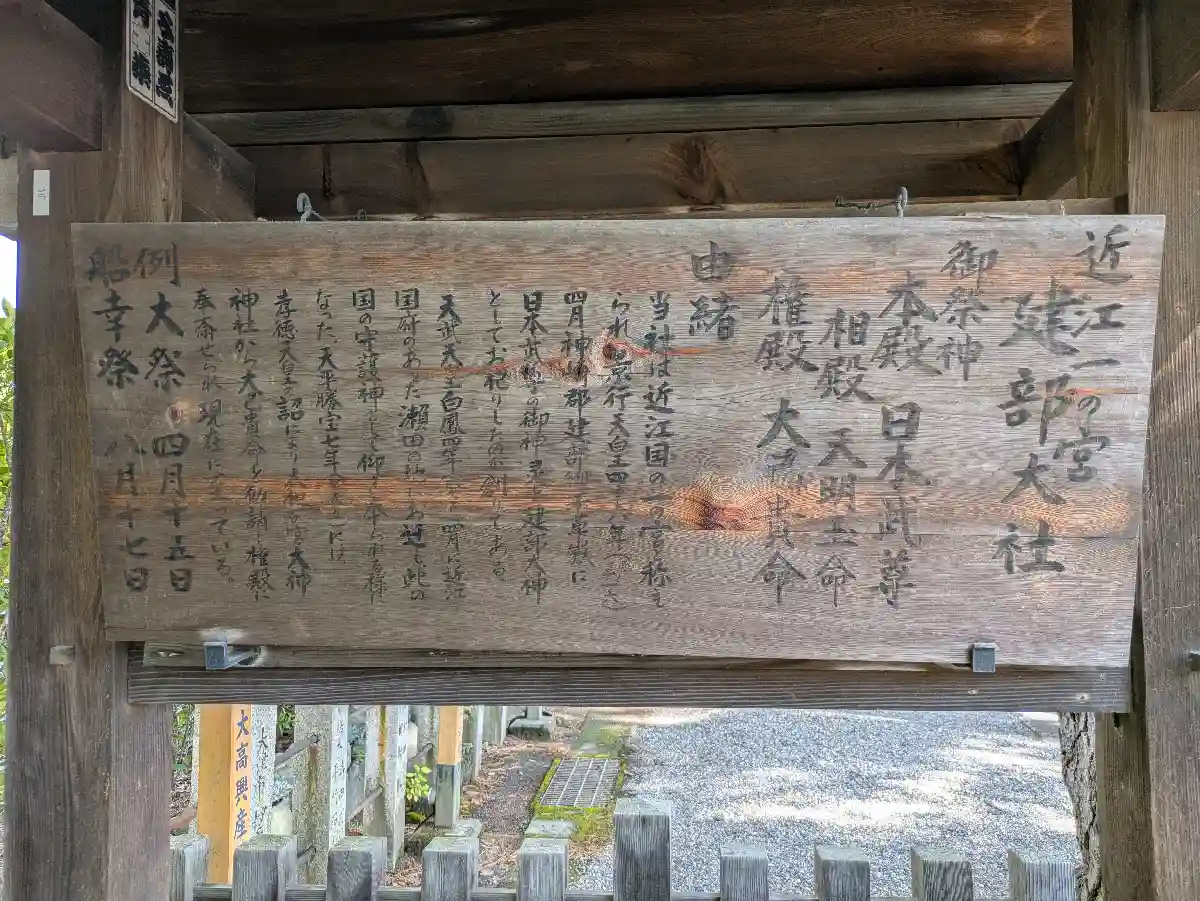 近江一の宮
建部大社
御祭神
本殿 日本武尊
相殿 天明玉命
権殿 大己貴命
由緒
当社は近江国の一の宮と称え
られ 景行天皇四十六年
四月神崎郡建部郷千草嶽に
日本武尊の御神霊を建部大神
としてお祀りしたのが創りである
天武天皇白鳳四年 四月に近江
国府のあった瀬田の地にお遷し此の
国の守護神として仰
なった、天平勝宝七年 には
孝徳天皇の詔により大和 大神
神社から大己貴命を勧請し権殿に
奉斎せられ現在に至っている。
例大祭 四月十五日
船幸祭 八月十七日
大高興産